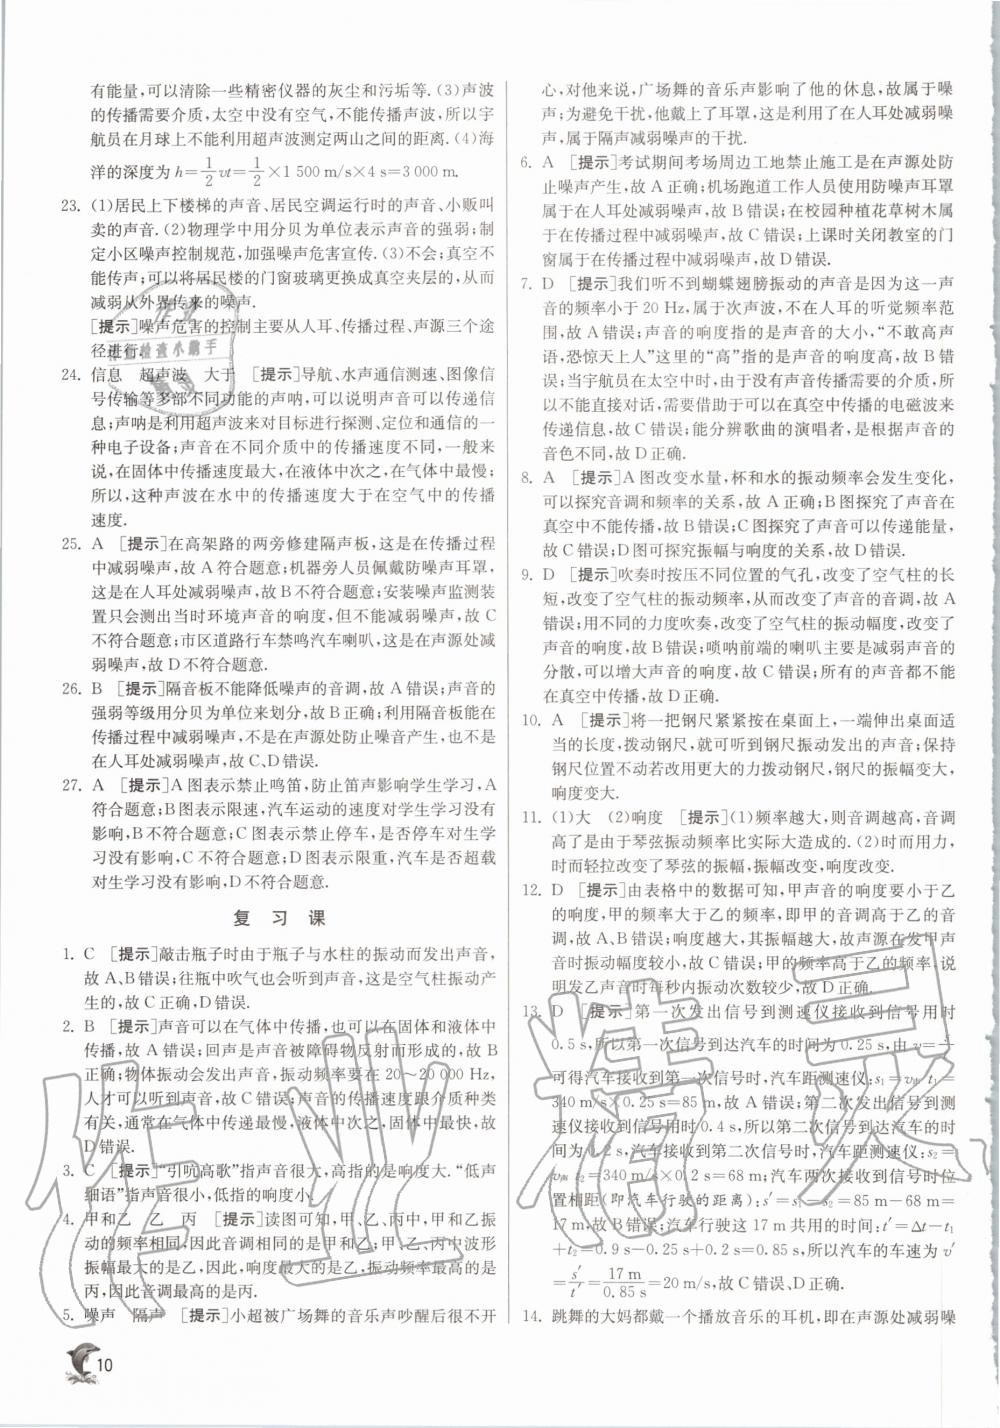 有能量,可以清除一些精密仪器的灰尘和污垢等.(3)声波
的传播需要介质,太空中没有空气,不能传播声波,所以宇
航员在月球上不能利用超声波测定两山之间的距离.(4)海
洋的深度为 h=1/2 vt=1/2×1 500 m/s×4 s=3 000 m.
23. (1)居民上下楼梯的声音、居民空调运行时的声音、小贩叫
卖的声音.(2)物理学中用分贝为单位表示声音的强弱;制
定小区噪声控制规范,加强噪声危害宣传.(3)不会;真空不
能传声;可以将居民楼的门窗玻璃更换成真空夹层的,从而
减弱从外界传来的噪声.
[提示]噪声危害的控制主要从人耳、传播过程、声源三个途
径进行.
24. 信息 超声波 大于 [提示]导航、水声通信测速、图像信
号传输等多部不同功能的声呐,可以说明声音可以传递信
息;声呐是利用超声波来对目标进行探测、定位和通信的一
种电子设备;声音在不同介质中的传播速度不同,一般来
说,在固体中传播速度最大,在液体中次之,在气体中最慢;
所以,这种声波在水中的传播速度大于在空气中的传播
速度.
25. A [提示]在高架路的两旁修建隔声板,这是在传播过程
中减弱噪声,故 A 符合题意;机器旁人员佩戴防噪声耳罩,
这是在人耳处减弱噪声,故 B 不符合题意;安装噪声监测装
置只会测出当时环境声音的响度,但不能减弱噪声,故 C
不符合题意;市区道路行车禁鸣汽车喇叭,这是在声源处减
弱噪声,故 D 不符合题意.
26. B [提示]隔音板不能降低噪声的音调,故 A 错误;声音的
强弱等级用分贝为单位来划分,故 B 正确;利用隔音板能在
传播过程中减弱噪声,不是在声源处防止噪声产生,也不是
在人耳处减弱噪声,故 C、D 错误.
27. A [提示]A 图表示禁止鸣笛,防止笛声影响学生学习,A
符合题意;B 图表示限速,汽车运动的速度对学生学习没有
影响,B 不符合题意;C 图表示禁止停车,是否停车对学生学
习没有影响,C 不符合题意;D 图表示限重,汽车是否超载
对生学习没有影响,D 不符合题意.
复 习 课
1. C [提示]敲击瓶子时由于瓶子与水柱的振动而发出声音,
故 A、B 错误;往瓶中吹气也会听到声音,这是空气柱振动产
生的,故 C 正确,D 错误.
2. B [提示]声音可以在气体中传播,也可以在固体和液体中
传播,故 A 错误;回声是声音被障碍物反射而形成的,故 B
正确;物体振动会发出声音,振动频率要在 20～20 000 Hz,
人才可以听到,故 C 错误;声音的传播速度跟介质的种类
有关,通常在气体中传递最慢,液体中次之,固体中最快,故
D 错误.
3. C [提示]“引吭高歌”指声音很大,高指的是响度大.“低声
细语”指声音很小,低指的响度小.
4. 甲和乙 乙 丙 [提示]读图可知,甲、乙、丙中,甲和乙振
动的频率相同,因此音调相同;甲、乙、丙中波形
振幅最大的是乙,因此,响度最大的是乙;丙振动的频率最
大,因此音调最高的是丙.
5. 噪声 隔声 [提示]小超被广场舞的音乐声吵醒后很不开
心,对他来说,广场舞的音乐声影响了他的休息,故属于噪
声;为避免干扰,他戴上了耳罩,这是利用了在人耳处减弱噪
声,属于隔声减弱噪声的干扰.
6. A [提示]考试期间考场周边工地禁止施工是在声源处防
止噪声产生,故 A 正确;机场跑道工作人员使用防噪声耳罩
属于在人耳处减弱噪声,故 B 错误;在校园种植花草树木属
于在传播过程中减弱噪声,故 C 错误;上课时关闭教室的门
窗属于在传播过程中减弱噪声,故 D 错误.
7. D [提示]我们听不到蝴蝶翅膀振动的声音是因为这一声
音的频率小于 20 Hz,属于次声波,不在人耳的听觉频率范
围,故 A 错误;声音的响度指的是声音的大小,“不敢高声
语,恐惊天上人”这里的“高”指的是声音的响度高,故 B 错
误;当宇航员在太空中时,由于没有声音传播需要的介质,所
以不能直接对话,需要借助于可以在真空中传播的电磁波来
传递信息,故 C 错误;能分辨歌曲的演唱者,是根据声音的
音色不同,故 D 正确.
8. A [提示]A 图改变水量,杯和水的振动频率会发生变化,
可以探究音调和频率的关系,故 A 正确;B 图探究了声音在
真空中不能传播,故 B 错误;C 图探究了声音可以传递能量,
故 C 错误;D 图可探究振幅与响度的关系,故 D 错误.
9. D [提示]吹奏时按压不同位置的气孔,改变了空气柱的长
短,改变了空气柱的振动频率,从而改变了声音的音调,故 A
错误;用不同的力度吹奏,改变了空气柱的振动幅度,改变了
声音的响度,故 B 错误;唢呐前端的喇叭主要是减弱声音的
分散,可以增大声音的响度,故 C 错误;所有的声音都不能
在真空中传播,故 D 正确.
10. A [提示]将一把钢尺紧紧按在桌面上,一端伸出桌面适
当的长度,拨动钢尺,就可听到钢尺振动发出的声音;保持
钢尺位置不动若改用更大的力拨动钢尺,钢尺的振幅变大,
响度变大.
11. (1)大 (2)响度 [提示](1)频率越大,则音调越高,音调
高了是由于琴弦振动频率比实际大造成的.(2)时而用力,
时而轻拉改变了琴弦的振幅,振幅改变,响度改变.
12. D [提示]由表格中的数据可知,甲声音的响度要小于乙
的响度,甲的频率大于乙的频率,即甲的音调高于乙的音
调,故 A、B 错误;响度越大,其振幅越大,故声源在发甲声
音时振动幅度较小,故 C 错误;甲的频率高于乙的频率,说
明发乙声音时每秒内振动次数较少,故 D 正确.
13. D [提示]第一次发出信号到测速仪接收到信号用时
0.5 s,所以第一次信号到达汽车的时间为 0.25 s,由 v=s/t
可得汽车接收到第一次信号时,汽车距测速仪:s₁=v声 t₁=
340 m/s×0.25 s=85 m,故 A 错误;第二次发出信号到测
速仪接收到信号用时 0.4 s,所以第二次信号到达汽车的时
间为 0.2 s,汽车接收到第二次信号时,汽车距测速仪:s₂=
v声 t₂=340 m/s×0.2 s=68 m;汽车两次接收到信号时位
置相距(即汽车行驶的距离):s′=s₁−s₂=85 m−68 m=
17 m,故 B 错误;汽车行驶这 17 m 共用的时间:t′=Δt−t₁
+t₂=0.9 s−0.25 s+0.2 s=0.85 s,所以汽车的车速为 v′
=s′/t′=17 m/0.85 s=20 m/s,故 C 错误、D 正确.
14. 跳舞的大妈都戴一个播放音乐的耳机,即在声源处减弱噪
10
作业精灵
作业检查小帮手